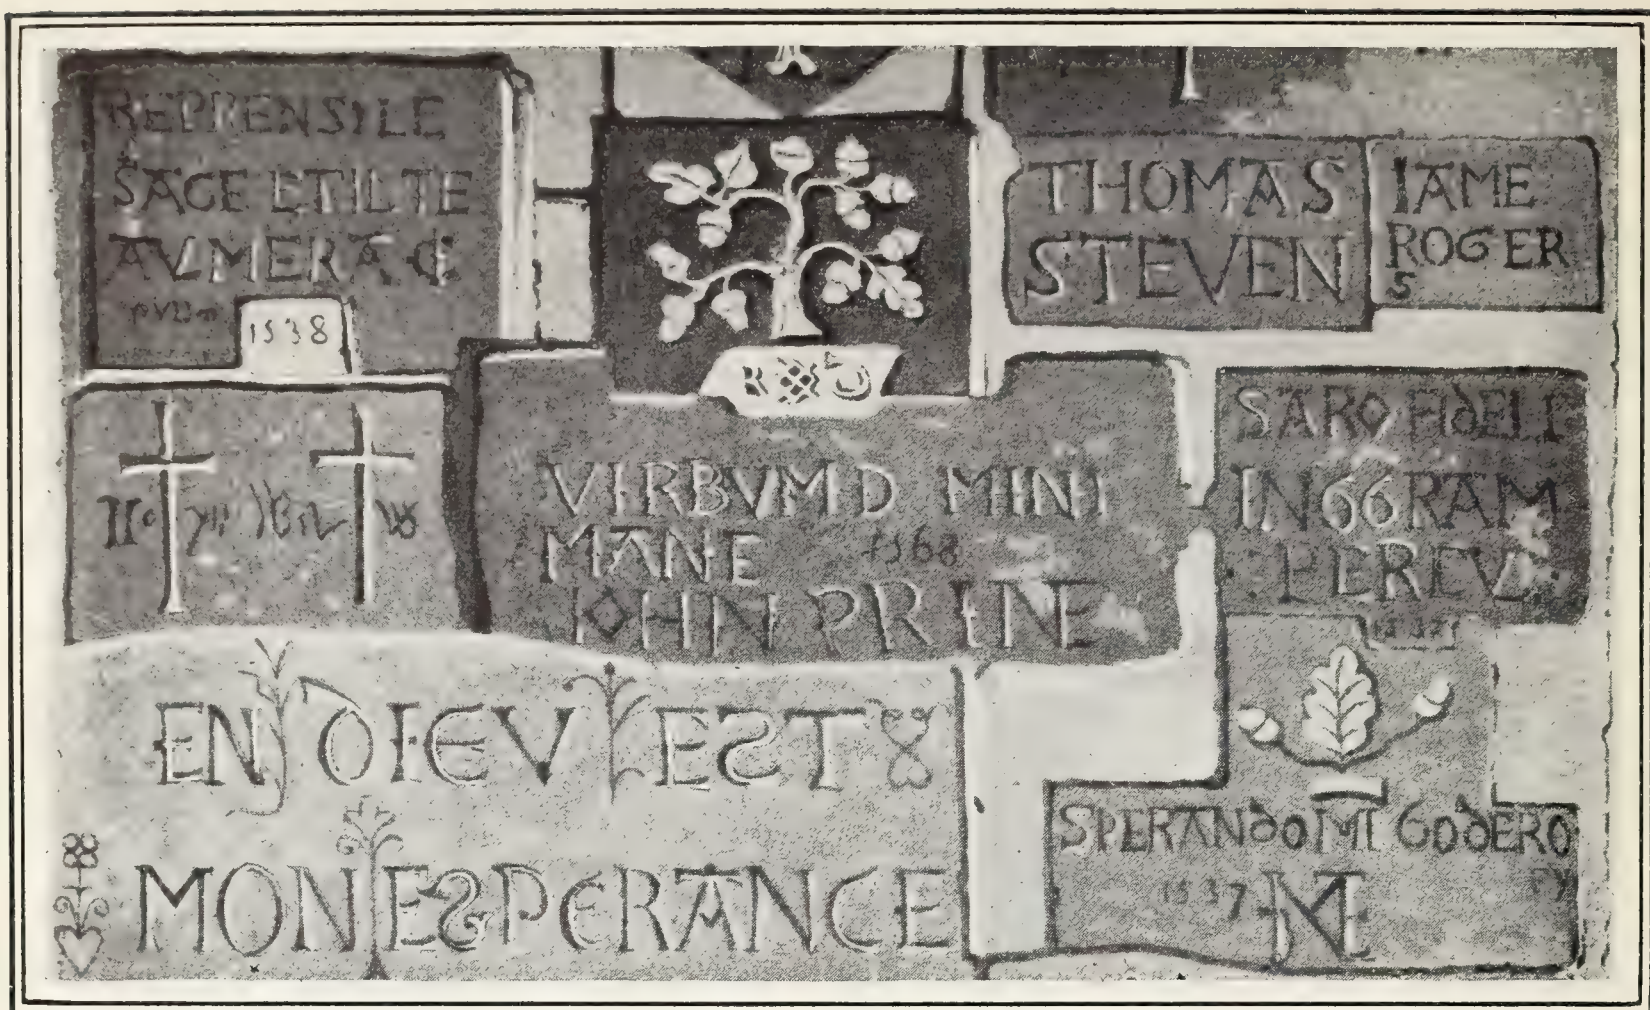 REPRENS·LE
SAGE ET IL TE
AVMERA
1538
THOMAS
STEVEN
IAME
ROGER
S
VIRBVM D MINI
MANE 1568
IOHN PRINE
SARO FIDELI
INGGRAM
PERCVI
1537
EN DIEV EST
MON ESPERANCE
SPERANDO MI GODERO
1537 ME